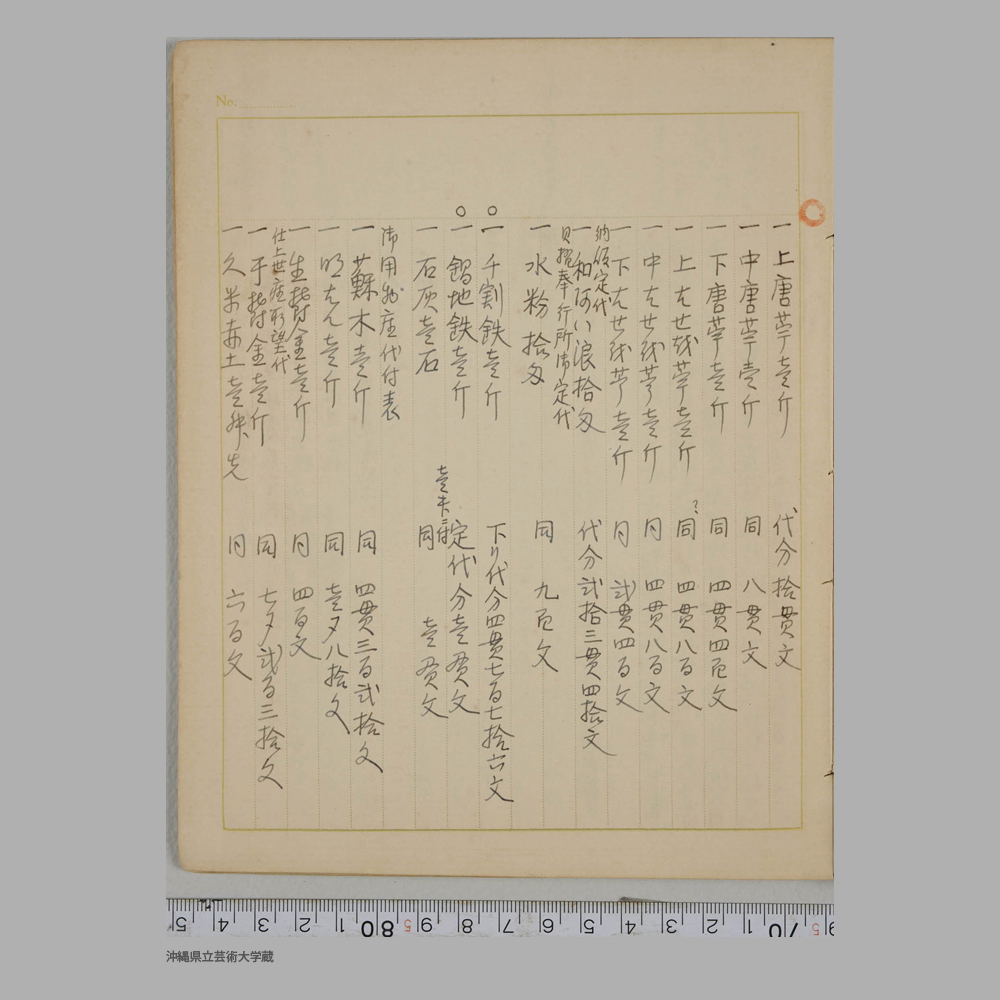 No.
一 上唐苧壱斤 代分 拾貫文
一 中唐苧壱斤 同 八貫文
一 下唐苧壱斤 同 四貫四百文
一 上 苧壱斤 同 四貫八百文
一 中 苧壱斤 同 四貫八百文
一 下 苧壱斤 同 弐貫四百文
納仮定代
一 浪拾匁 代分弐拾三貫四拾文
貝摺奉行所御定代
一 水粉拾匁 同 九百文
一 千割鉄壱斤 下り代分四貫七百七拾六文
一 錫地鉄壱斤 定代分壱貫文
一 石灰壱石 同 壱貫文
御用物座代付表
一 蘇木壱斤 同 四貫三百弐拾文
一 明はん壱斤 同 壱〆八拾文
一 生 壱斤 同 四百文
仕上世座所望代
一 干 壱斤 同 七〆弐百三拾文
一 久米赤土壱 同 六百文
5 4 3 2 1 80 9 8 7 6 5 4 3 2 1 70 9
沖縄県立芸術大学蔵